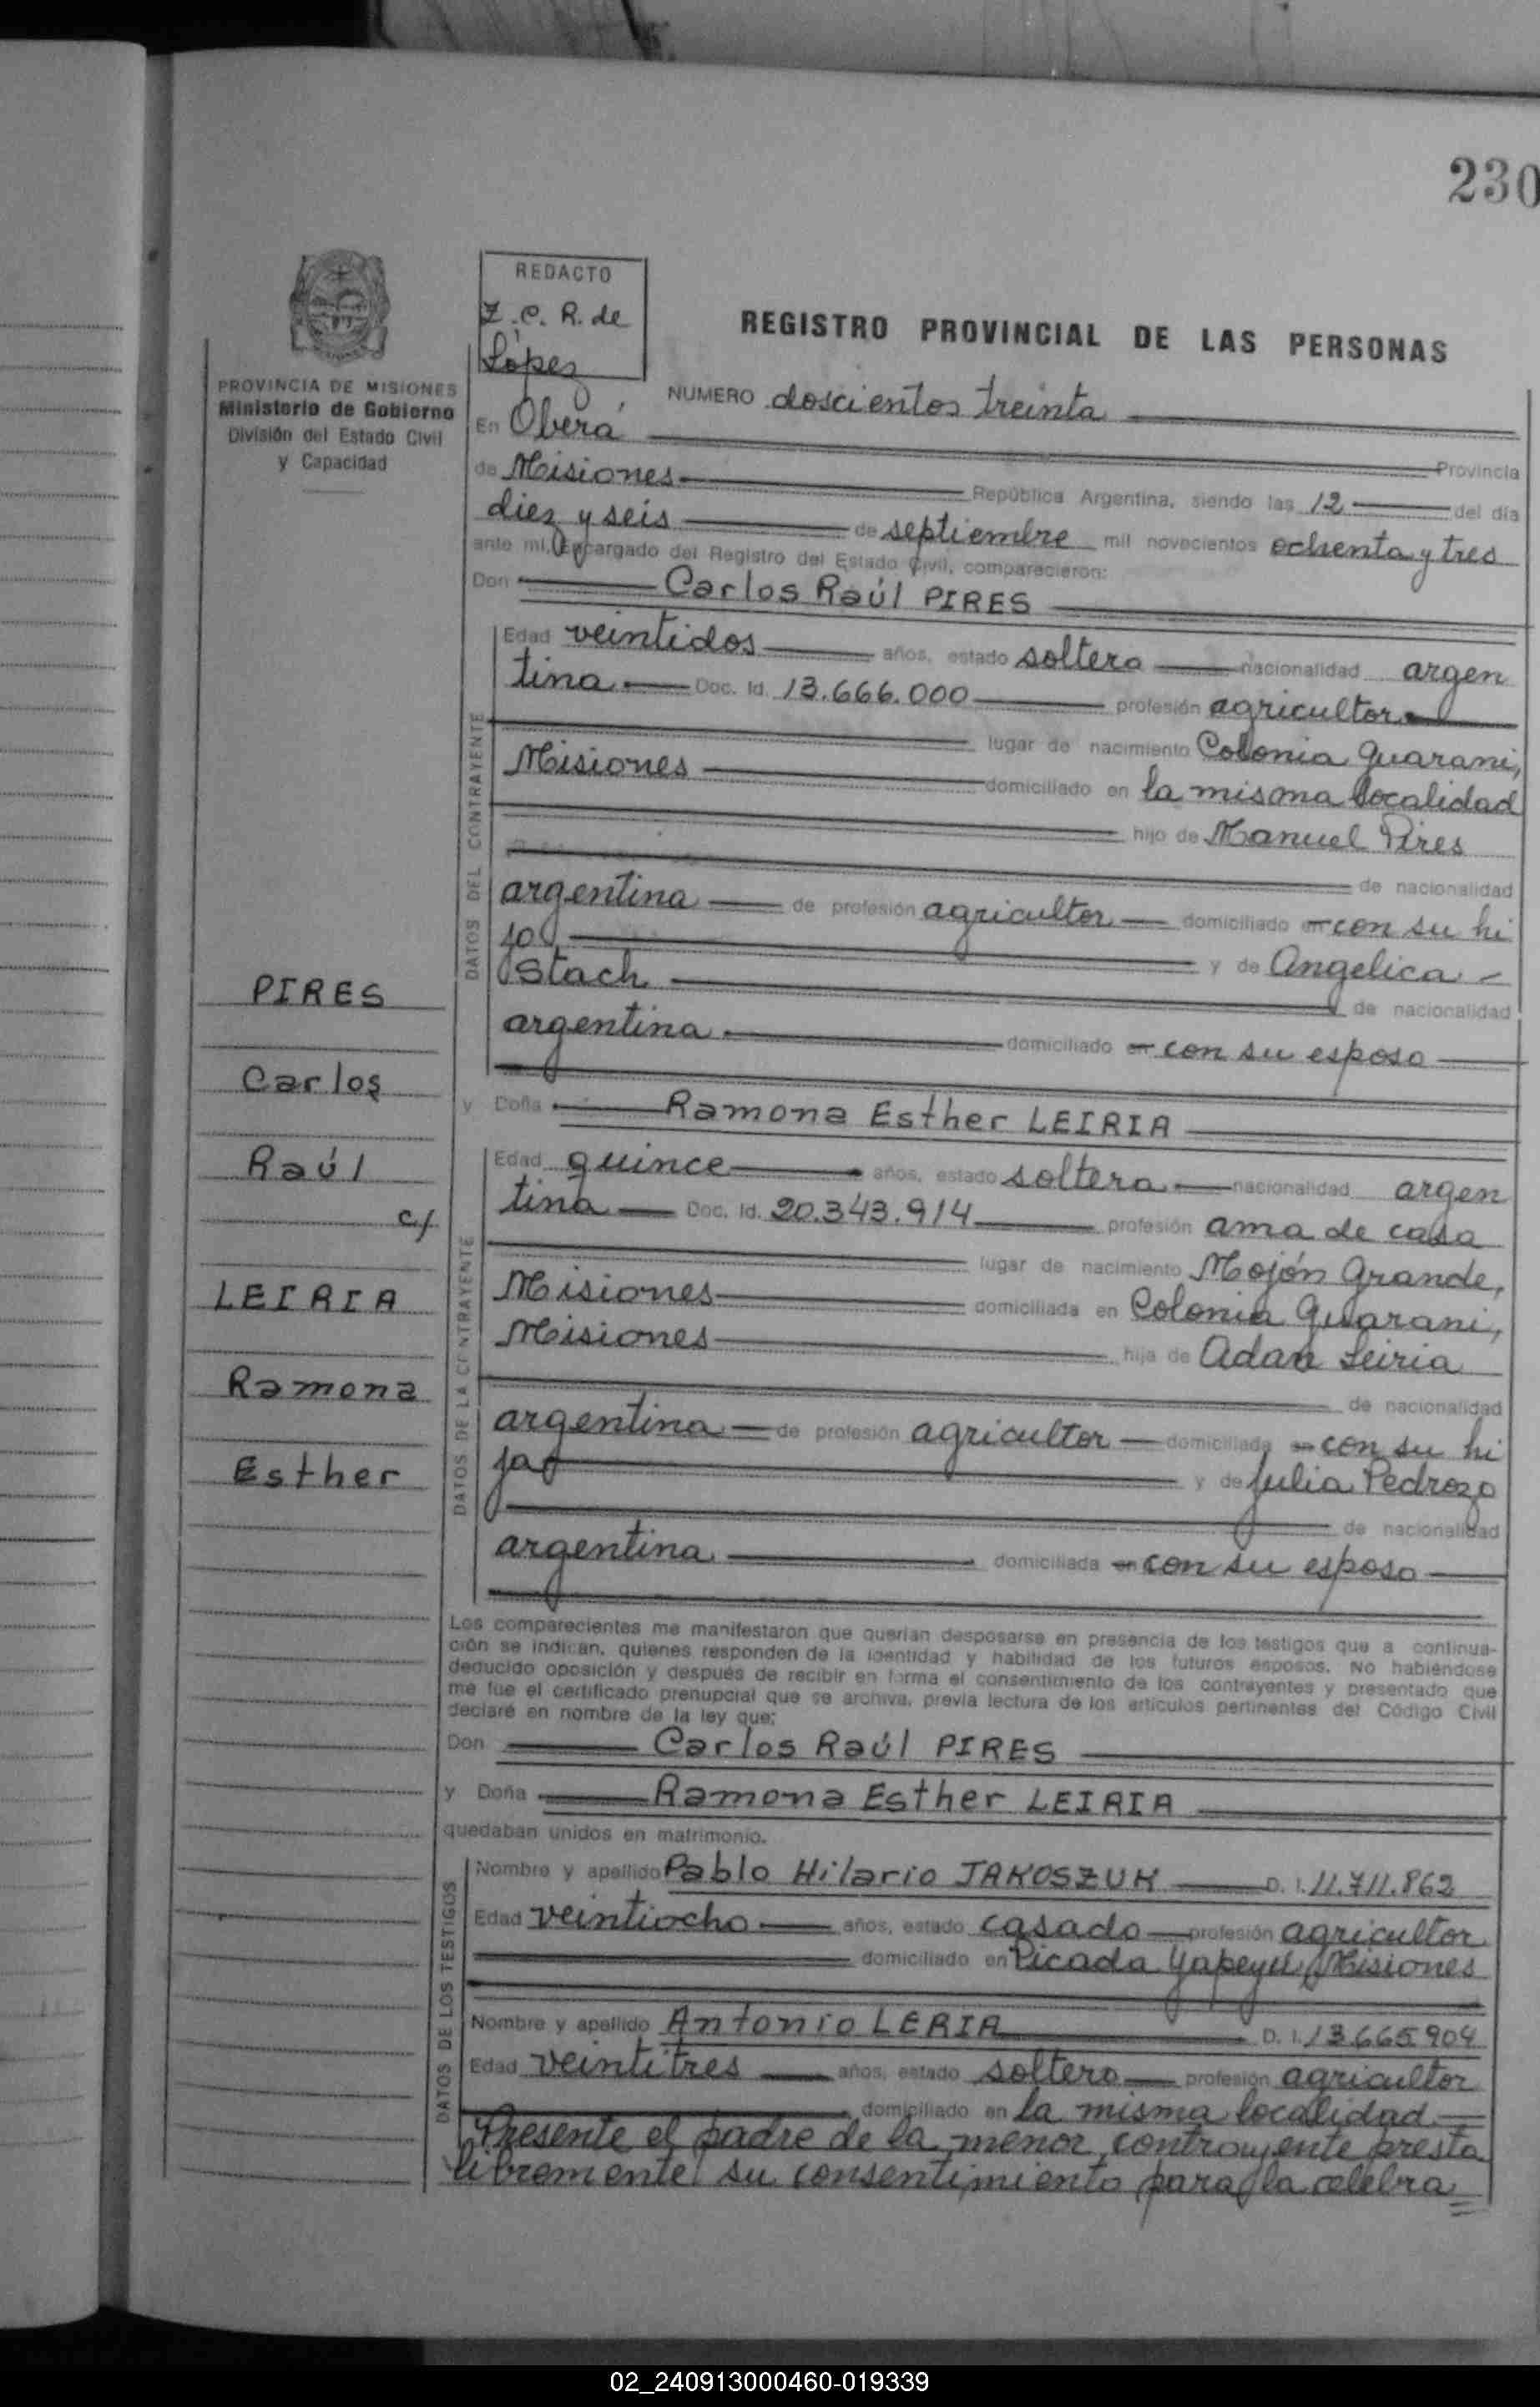 230
REDACTO
Z.C.R. de
López
REGISTRO PROVINCIAL DE LAS PERSONAS
PROVINCIA DE MISIONES
Ministerio de Gobierno
División del Estado Civil
y Capacidad
NUMERO doscientos treinta
En Oberá
Provincia
de Misiones República Argentina, siendo las 12 del día
diez y seis de septiembre mil novecientos ochenta y tres
ante mí, Encargado del Registro del Estado Civil, comparecieron:
Don Carlos Raúl PIRES
DATOS DEL CONTRAYENTE
Edad veintidos años, estado soltero nacionalidad argen
tina Doc. Id. 13.666.000 profesión agricultor
lugar de nacimiento Colonia Guarani,
Misiones domiciliado en la misma localidad
hijo de Manuel Pires
de nacionalidad
argentina de profesión agricultor domiciliado en con su hi
jo y de Angelica
Stach de nacionalidad
argentina domiciliado en con su esposo
y Doña Ramona Esther LEIRIA
DATOS DE LA CONTRAYENTE
Edad quince años, estado soltera nacionalidad argen
tina Doc. Id. 20.343.914 profesión ama de casa
lugar de nacimiento Mojón Grande,
Misiones domiciliada en Colonia Guarani,
Misiones hija de Adan Leiria
de nacionalidad
argentina de profesión agricultor domiciliada en con su hi
ja y de Julia Pedrozo
de nacionalidad
argentina domiciliada en con su esposo
PIRES
Carlos
Raúl
c/
LEIRIA
Ramona
Esther
Los comparecientes me manifestaron que querían desposarse en presencia de los testigos que a continua-
ción se indican, quienes responden de la identidad y habilidad de los futuros esposos. No habiéndose
deducido oposición y después de recibir en forma el consentimiento de los contrayentes y presentado que
me fue el certificado prenupcial que se archiva, previa lectura de los artículos pertinentes del Código Civil
declaré en nombre de la ley que:
Don Carlos Raúl PIRES
y Doña Ramona Esther LEIRIA
quedaban unidos en matrimonio.
DATOS DE LOS TESTIGOS
Nombre y apellido Pablo Hilario JAKOSZUK D. I. 11.711.862
Edad veintiocho años, estado casado profesión agricultor
domiciliado en Picada Yapeyú, Misiones
Nombre y apellido Antonio LERIA D. I. 13.665.904
Edad veintitres años, estado soltero profesión agricultor
domiciliado en la misma localidad
Presente el padre de la menor contrayente presta
libremente su consentimiento para la celebra
02_240913000460-019339